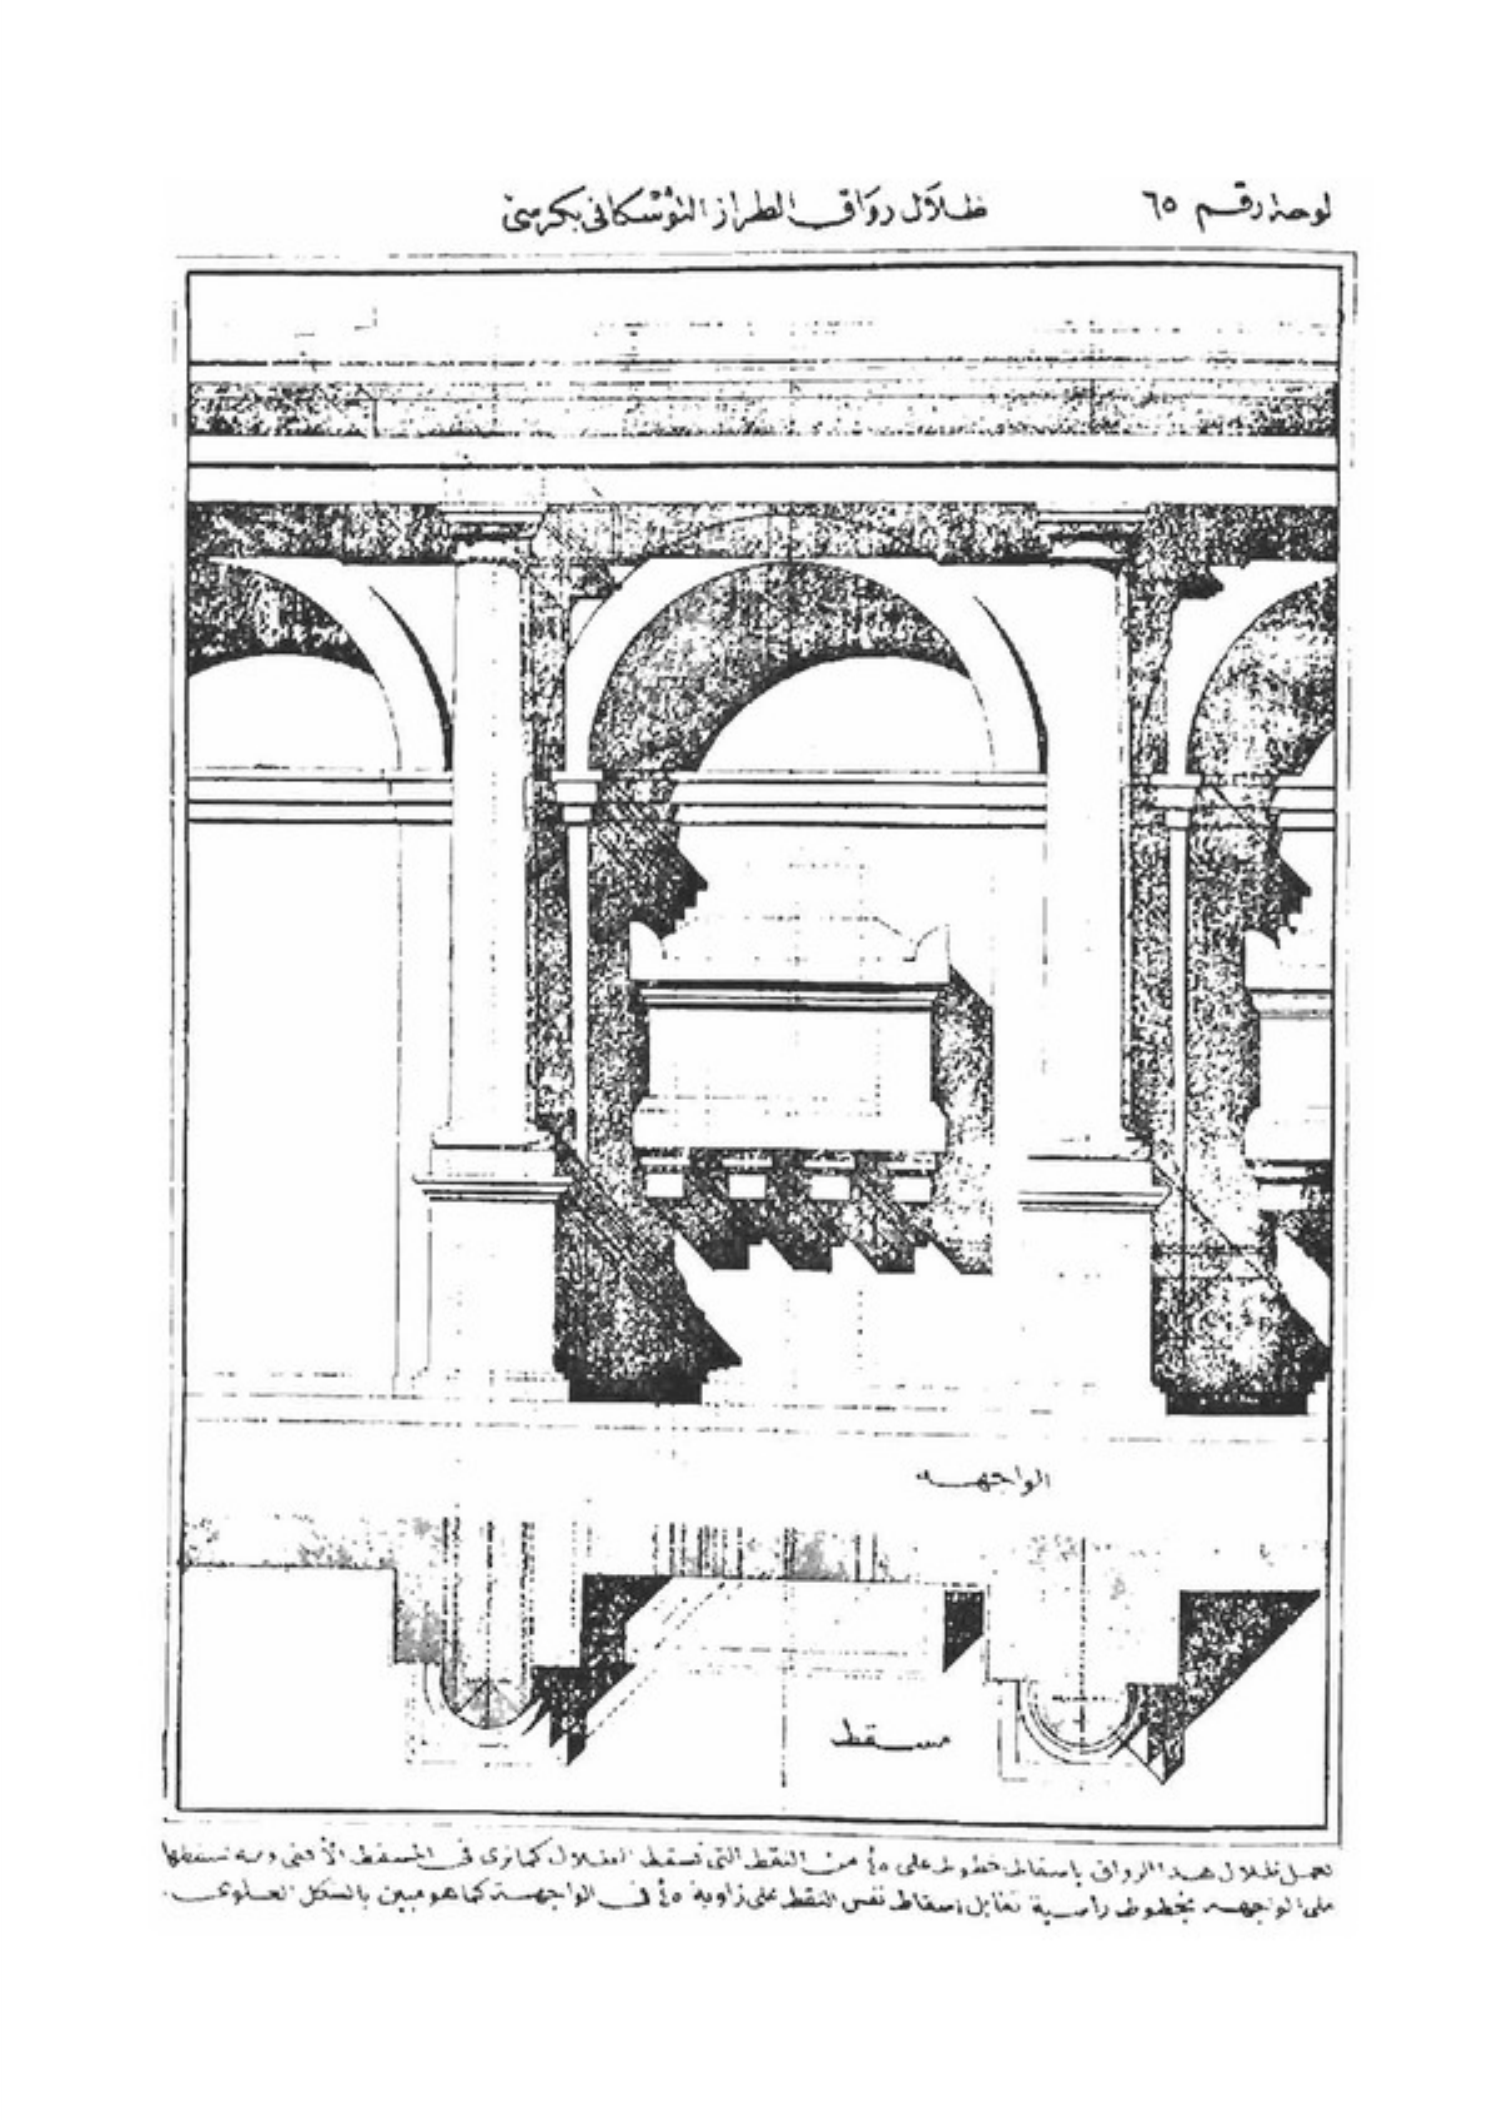 لوحة رقم ٦٥ ظلال رواق الطراز التوسكانى بكرسى
الواجهه
مسقط
تعمل ظلال هذا الرواق باسقاط خطوط على ٤٥ من النقط التى تسقط الظلال كما نرى فى المسقط الأفقى ومنه نسقطها
على الواجهه بخطوط رأسية تقابل اسقاط نفس النقط على زاوية ٤٥ فى الواجهة كما هو مبين بالشكل العلوى .